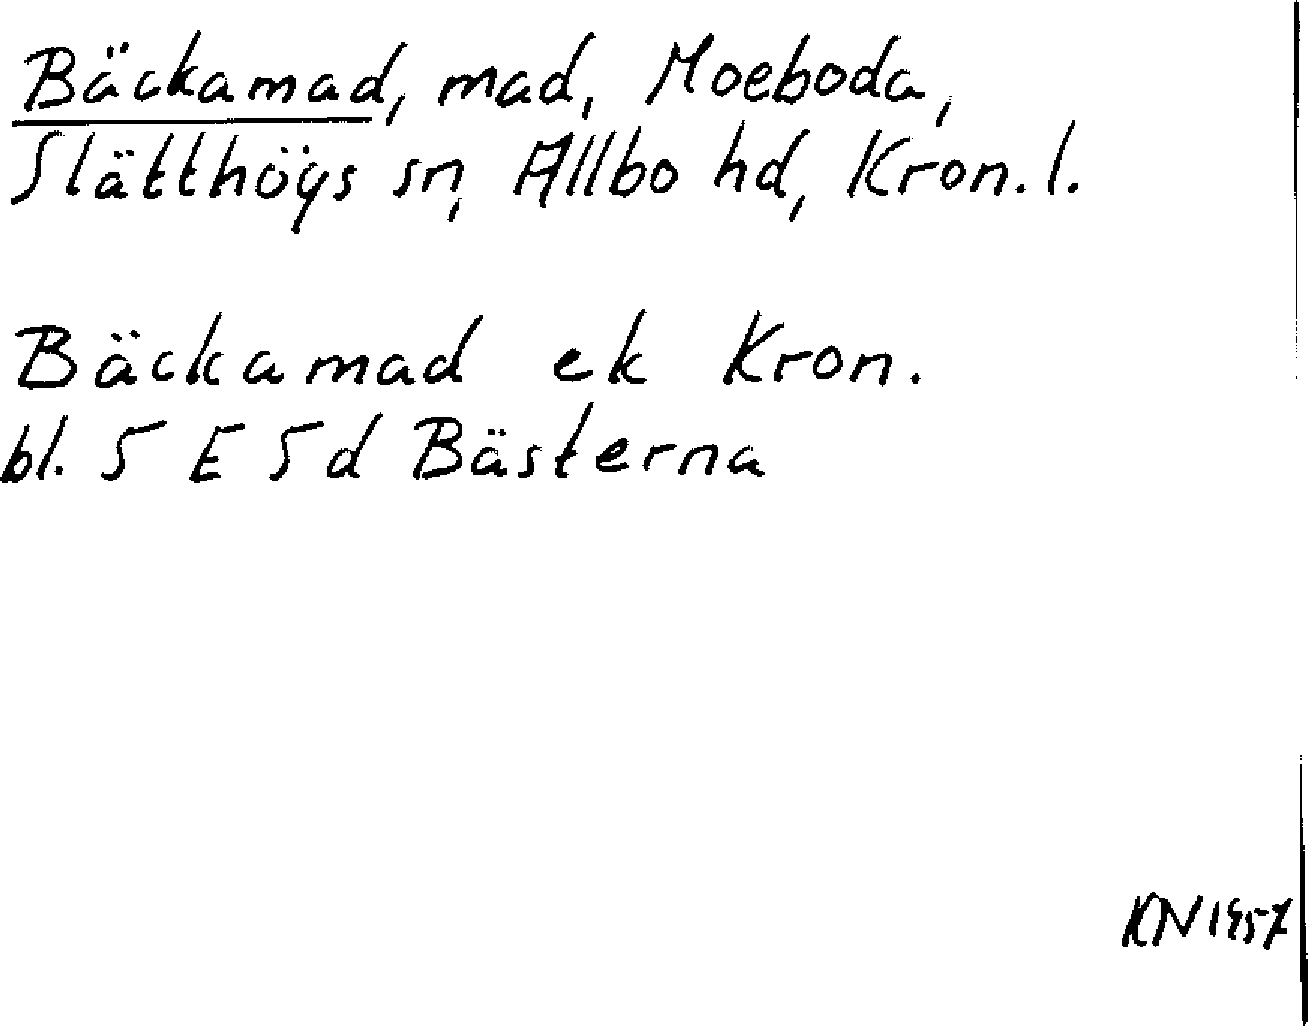 Bäckamad, mad, Moeboda,
Slätthögs sn, Allbo hd, Kron. l.
Bäckamad ek Kron.
bl. 5 E 5 d Bästerna
KN 1957